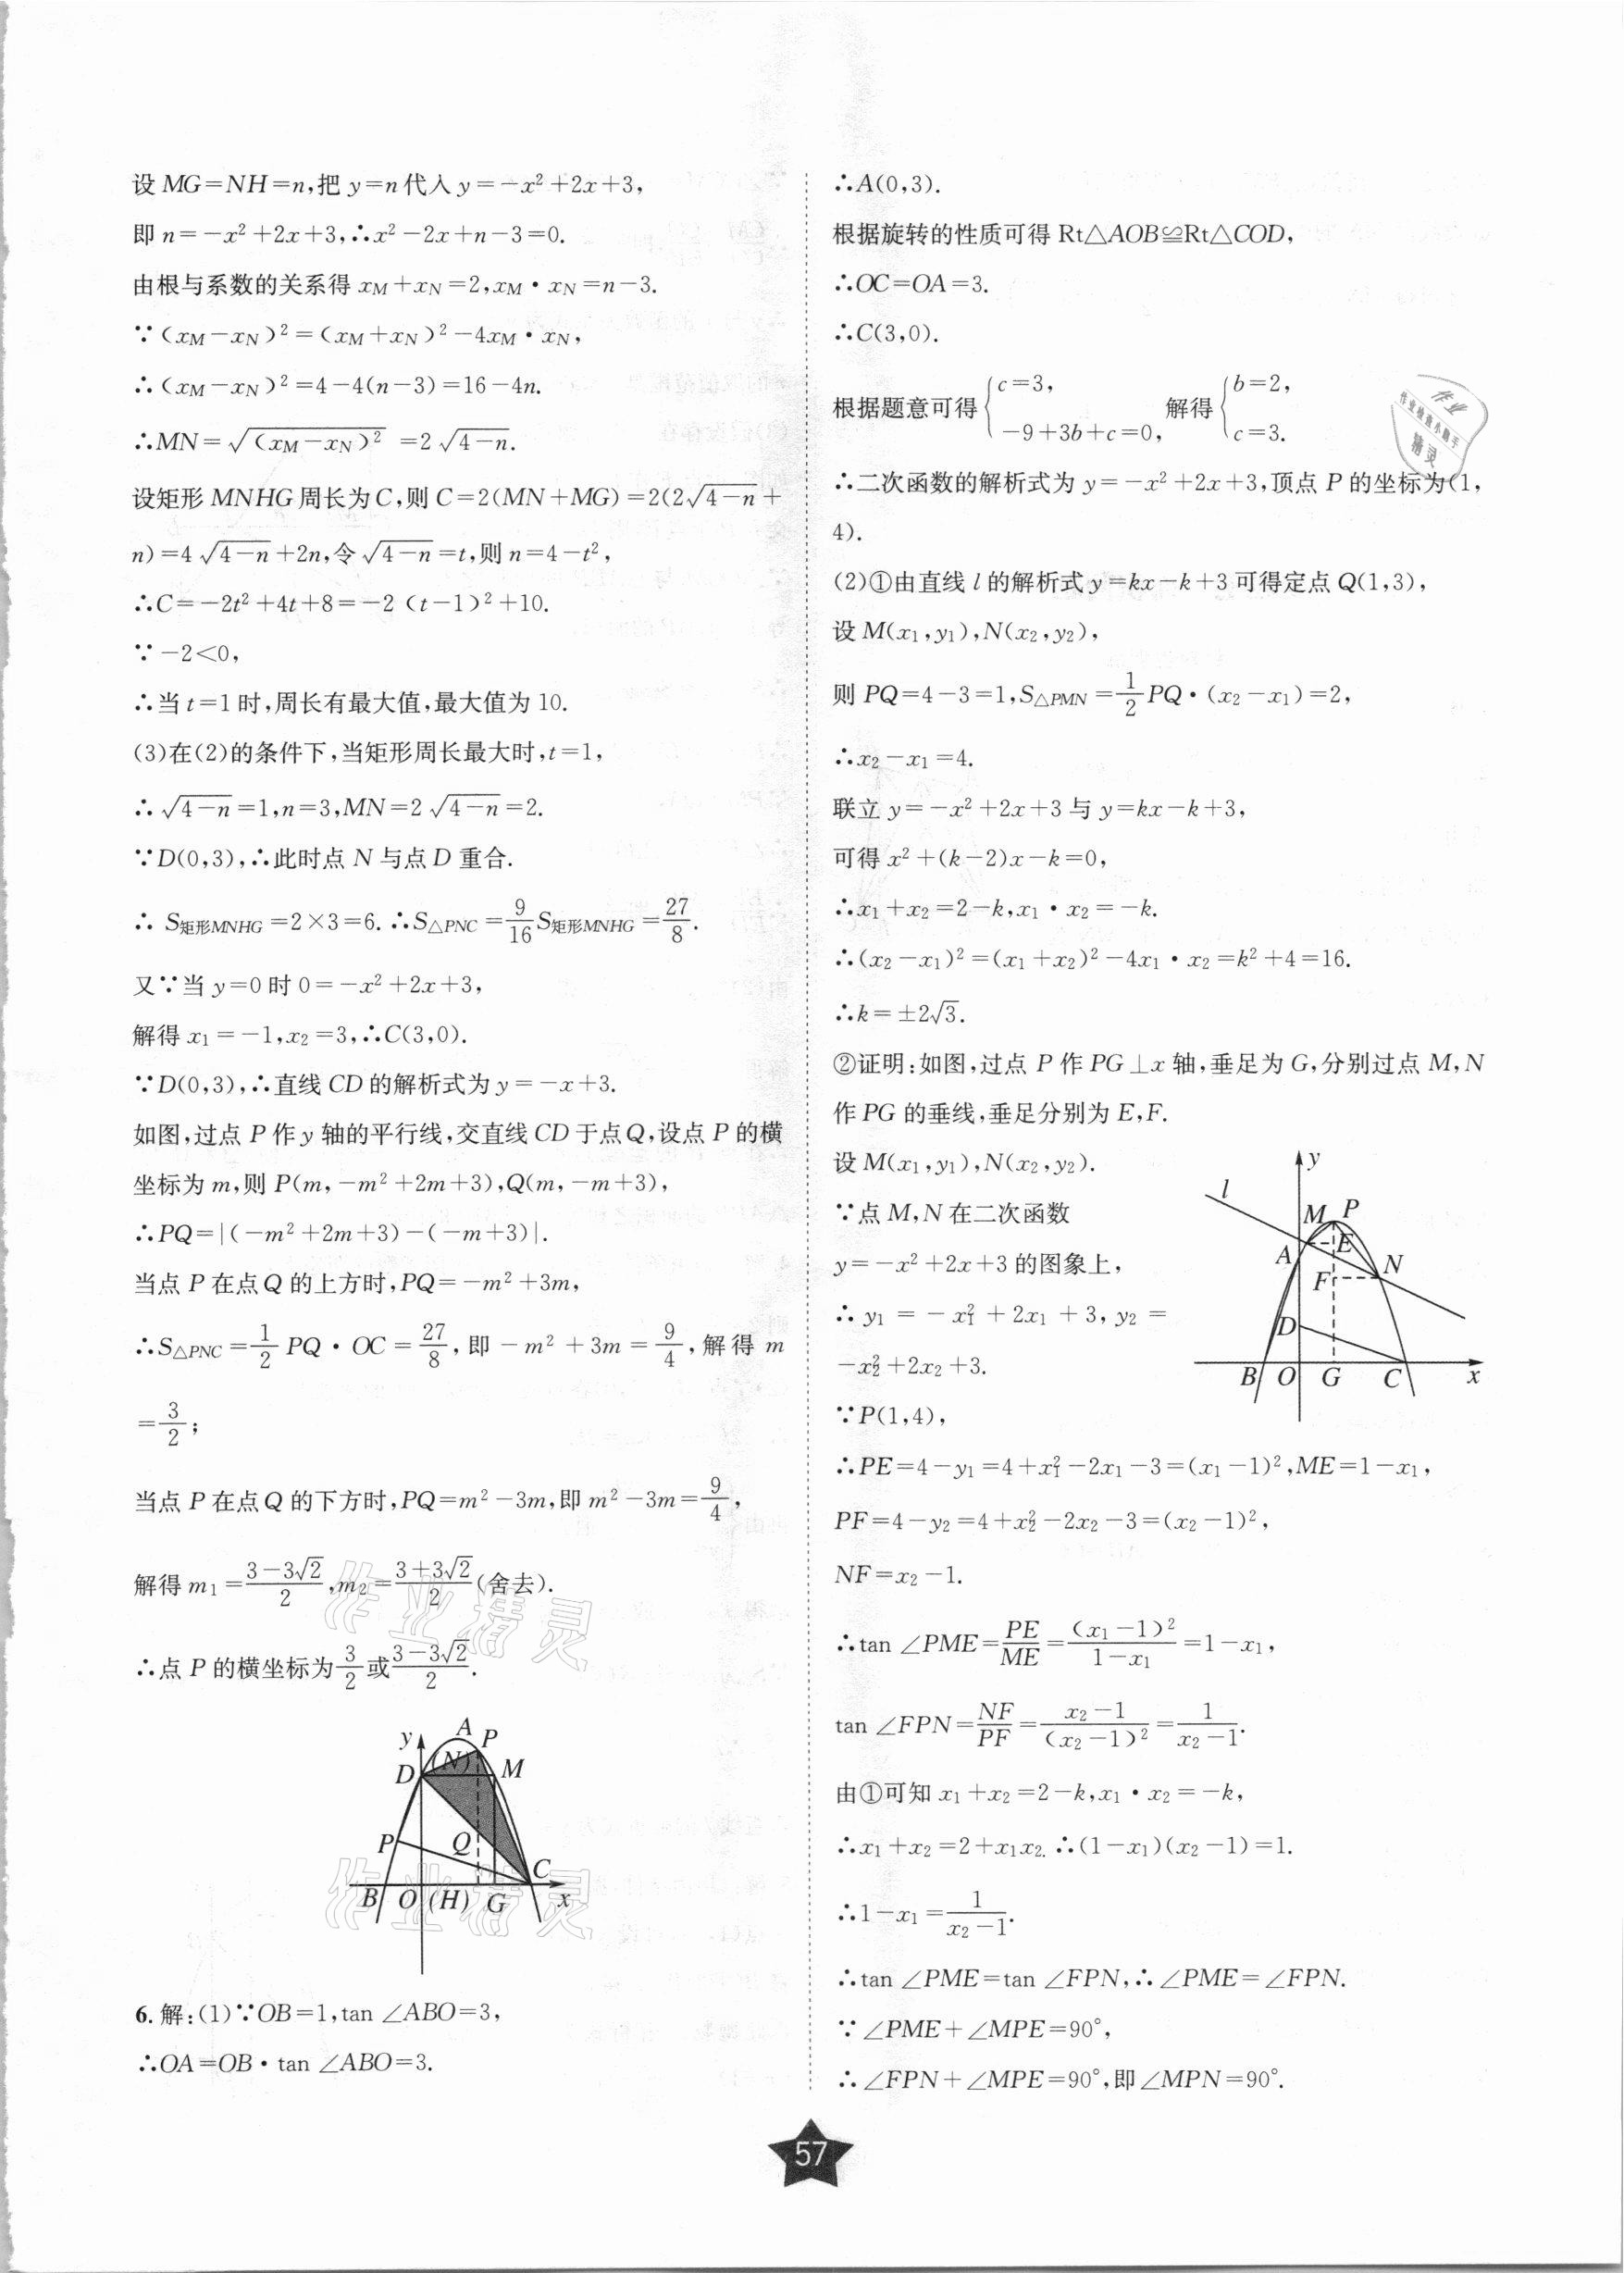 设 MG=NH=n,把 y=n代入 y=-x²+2x+3,
即 n=-x²+2x+3,∴x²-2x+n-3=0.
由根与系数的关系得 x_M+x_N=2,x_M·x_N=n-3.
∵(x_M-x_N)²=(x_M+x_N)²-4x_M·x_N,
∴(x_M-x_N)²=4-4(n-3)=16-4n.
∴MN=√((x_M-x_N)²)=2√(4-n).
设矩形 MNHG 周长为C,则 C=2(MN+MG)=2(2√(4-n)+
n)=4√(4-n)+2n,令√(4-n)=t,则 n=4-t²,
∴C=-2t²+4t+8=-2(t-1)²+10.
∵-2<0,
∴当 t=1 时,周长有最大值,最大值为 10.
(3)在(2)的条件下,当矩形周长最大时,t=1,
∴√(4-n)=1,n=3,MN=2√(4-n)=2.
∵D(0,3),∴此时点 N 与点 D 重合.
∴ S矩形MNHG=2×3=6.∴S△PNC=9/16 S矩形MNHG=27/8.
又∵当 y=0 时 0=-x²+2x+3,
解得 x₁=-1,x₂=3,∴C(3,0).
∵D(0,3),∴直线 CD 的解析式为 y=-x+3.
如图,过点 P 作 y 轴的平行线,交直线 CD 于点Q,设点 P 的横
坐标为 m,则 P(m,-m²+2m+3),Q(m,-m+3),
∴PQ=|(-m²+2m+3)-(-m+3)|.
当点 P 在点 Q 的上方时,PQ=-m²+3m,
∴S△PNC=1/2 PQ·OC=27/8,即-m²+3m=9/4,解得 m
=3/2;
当点 P 在点 Q 的下方时,PQ=m²-3m,即 m²-3m=9/4,
解得 m₁=(3-3√2)/2,m₂=(3+3√2)/2(舍去).
∴点 P 的横坐标为3/2或(3-3√2)/2.
y A P
D (N) M
P Q C
B O (H) G x
6.解:(1)∵OB=1,tan∠ABO=3,
∴OA=OB·tan∠ABO=3.
∴A(0,3).
根据旋转的性质可得 Rt△AOB≌Rt△COD,
∴OC=OA=3.
∴C(3,0).
根据题意可得{c=3, -9+3b+c=0, 解得{b=2, c=3.
∴二次函数的解析式为 y=-x²+2x+3,顶点 P 的坐标为(1,
4).
(2)①由直线 l 的解析式 y=kx-k+3 可得定点 Q(1,3),
设 M(x₁,y₁),N(x₂,y₂),
则 PQ=4-3=1,S△PMN=1/2 PQ·(x₂-x₁)=2,
∴x₂-x₁=4.
联立 y=-x²+2x+3 与 y=kx-k+3,
可得 x²+(k-2)x-k=0,
∴x₁+x₂=2-k,x₁·x₂=-k.
∴(x₂-x₁)²=(x₁+x₂)²-4x₁·x₂=k²+4=16.
∴k=±2√3.
②证明:如图,过点 P 作 PG⊥x 轴,垂足为 G,分别过点 M,N
作 PG 的垂线,垂足分别为 E,F.
设 M(x₁,y₁),N(x₂,y₂).
∵点 M,N 在二次函数
y=-x²+2x+3 的图象上,
∴y₁=-x₁²+2x₁+3,y₂=
-x₂²+2x₂+3.
∵P(1,4),
y
l M P
A E N
F
D
B O G C x
∴PE=4-y₁=4+x₁²-2x₁-3=(x₁-1)²,ME=1-x₁,
PF=4-y₂=4+x₂²-2x₂-3=(x₂-1)²,
NF=x₂-1.
∴tan∠PME=PE/ME=(x₁-1)²/(1-x₁)=1-x₁,
tan∠FPN=NF/PF=(x₂-1)/(x₂-1)²=1/(x₂-1).
由①可知 x₁+x₂=2-k,x₁·x₂=-k,
∴x₁+x₂=2+x₁x₂.∴(1-x₁)(x₂-1)=1.
∴1-x₁=1/(x₂-1).
∴tan∠PME=tan∠FPN,∴∠PME=∠FPN.
∵∠PME+∠MPE=90°,
∴∠FPN+∠MPE=90°,即∠MPN=90°.
57
作业精灵
作业精灵
作业
作业检查小助手
精灵